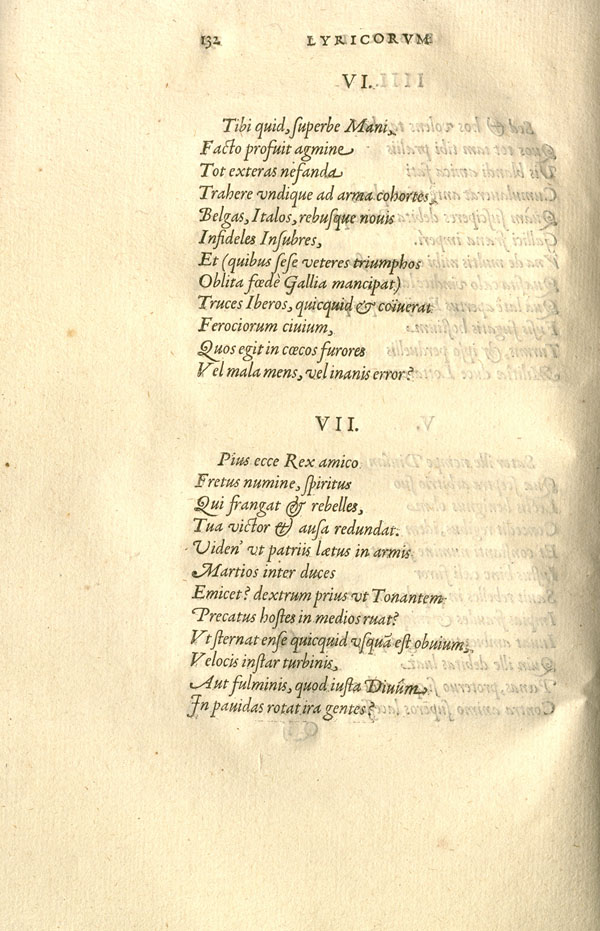 132 LYRICORVM
VI.
Tibi quid, superbe Mani,
Facto profuit agmine
Tot exteras nefanda
Trahere vndique ad arma cohortes,
Belgas, Italos, rebusque nouis
Infideles Insubres,
Et (quibus sese veteres triumphos
Oblita fœdè Gallia mancipat)
Truces Iberos, quicquid & coïuerat
Ferociorum ciuium,
Quos egit in cœcos furores
Vel mala mens, vel inanis error?
VII.
Pius ecce Rex amico
Fretus numine, spiritus
Qui frangat & rebelles,
Tua victor & ausa redundat.
Viden' vt patriis lætus in armis
Martios inter duces
Emicet? dextrum prius vt Tonantem
Precatus hostes in medios ruat?
Vt sternat ense quicquid vsquã est obuium,
Velocis instar turbinis,
Aut fulminis, quod iusta Diuûm
In pauidas rotat ira gentes?